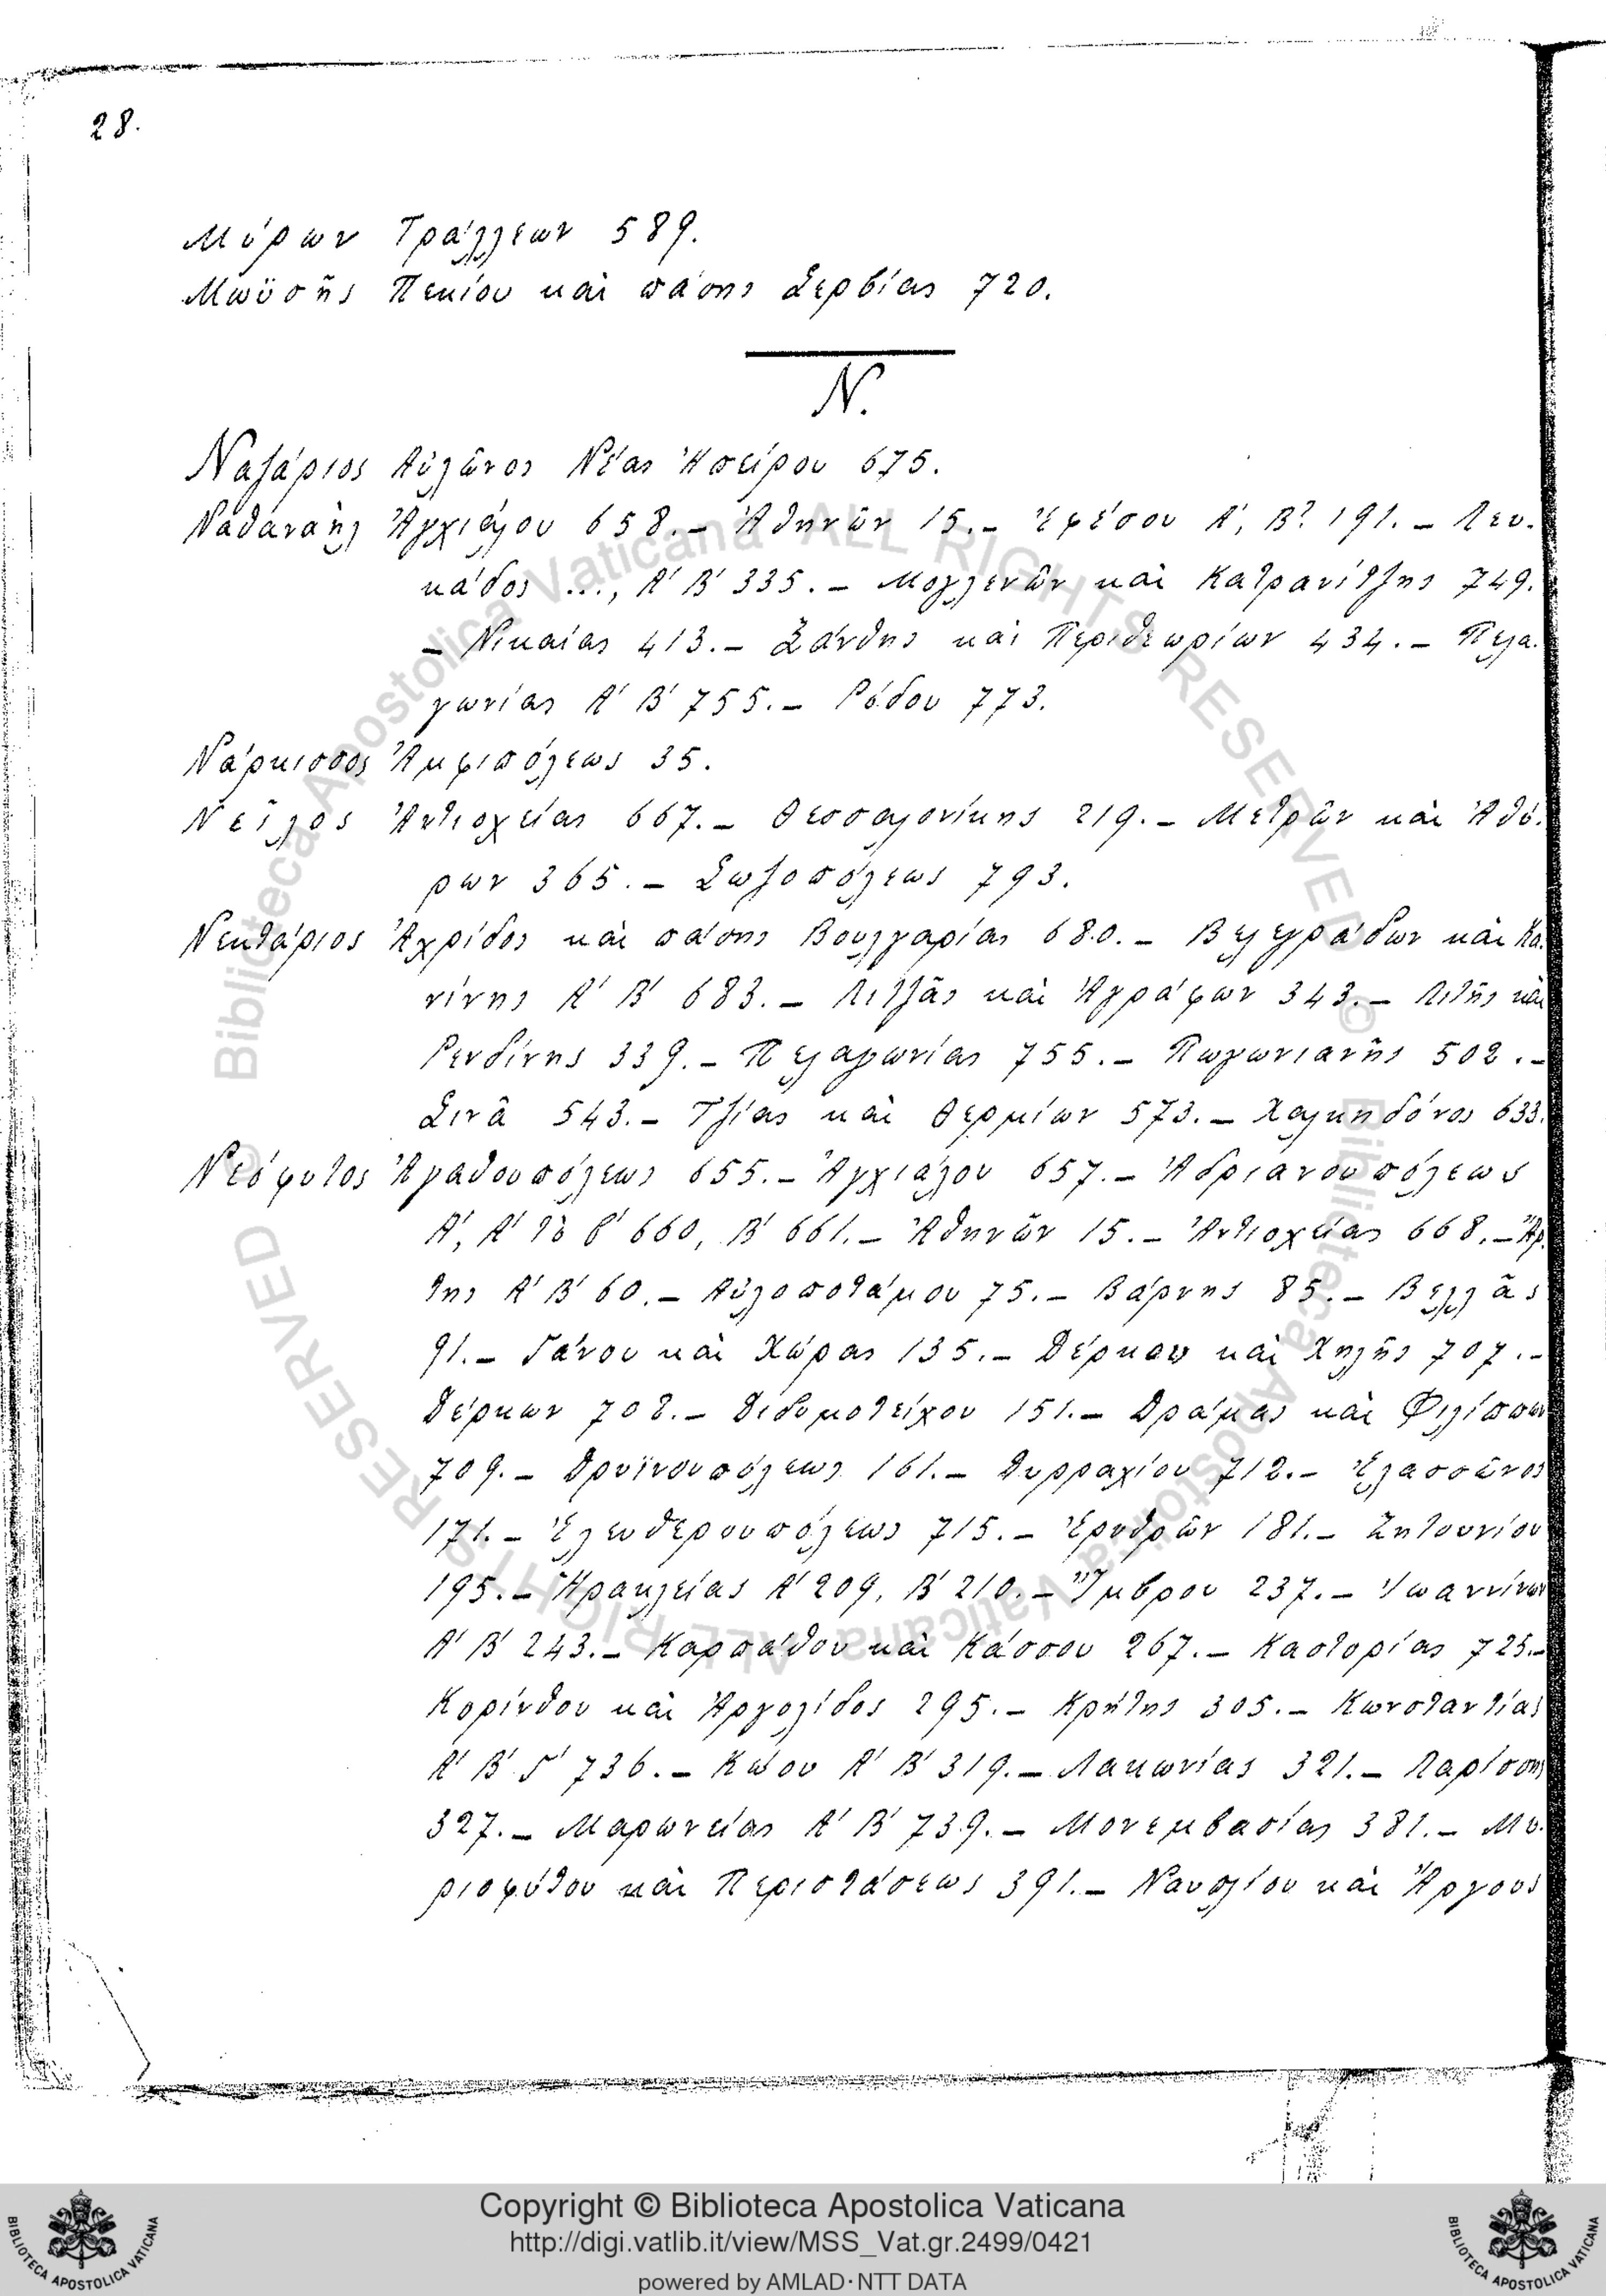 28.
Μύρων Τράλλεων 589.
Μωϋσῆς Πεκίου καὶ πάσης Σερβίας 720.
Ν.
Ναζάριος Αὐλῶνος Νέας Ἠπείρου 675.
Ναθαναὴλ Ἀγχιάλου 658.– Ἀθηνῶν 15.– Ἐφέσου Α΄, Β΄? 191.– Λευ-
κάδος ..., Α΄ Β΄ 335.– Μογλενῶν καὶ Κατρανίτζης 749.
– Νικαίας 413.– Ξάνθης καὶ Περιθεωρίων 434.– Πελα-
γωνίας Α΄ Β΄ 755.– Ρόδου 773.
Νάρκισσος Ἀμφιπόλεως 35.
Νεῖλος Ἀντιοχείας 667.– Θεσσαλονίκης 219.– Μετρῶν καὶ Ἀθύ-
ρων 365.– Σωζοπόλεως 793.
Νεκτάριος Ἀχρίδος καὶ πάσης Βουλγαρίας 680.– Βελεγράδων καὶ Κα-
νίνης Α΄ Β΄ 683.– Λιτζᾶς καὶ Ἀγράφων 343.– Λιτῆς καὶ
Ρενδίνης 339.– Πελαγωνίας 755.– Πωγωνιανῆς 502.–
Σινᾶ 543.– Τζίας καὶ Θερμίων 573.– Χαλκηδόνος 633.
Νεόφυτος Ἀγαθουπόλεως 655.– Ἀγχιάλου 657.– Ἀδριανουπόλεως
Α΄, Α΄ τὸ β΄ 660, Β΄ 661.– Ἀθηνῶν 15.– Ἀντιοχείας 668.– Ἄρ-
της Α΄ Β΄ 60.– Αὐλοποτάμου 75.– Βάρνης 85.– Βελλᾶς
91.– Γάνου καὶ Χώρας 135.– Δέρκου καὶ Χηλῆς 707.–
Δέρκων 708.– Διδυμοτείχου 151.– Δράμας καὶ Φιλίππων
709.– Δρυϊνουπόλεως 161.– Δυρραχίου 712.– Ἐλασσῶνος
171.– Ἐλευθερουπόλεως 715.– Ἐρυθρῶν 181.– Ζητουνίου
195.– Ἡρακλείας Α΄ 209, Β΄ 210.– Ἴμβρου 237.– Ἰωαννίνων
Α΄ Β΄ 243.– Καρπάθου καὶ Κάσσου 267.– Καστορίας 725.–
Κορίνθου καὶ Ἀργολίδος 295.– Κρήτης 305.– Κωνσταντίας
Α΄ Β΄ Γ΄ 736.– Κώου Α΄ Β΄ 319.– Λακωνίας 321.– Λαρίσσης
327.– Μαρωνείας Α΄ Β΄ 739.– Μονεμβασίας 381.– Μυ-
ριοφύτου καὶ Περιστάσεως 391.– Ναυπλίου καὶ Ἄργους
© Biblioteca Apostolica Vaticana ALL RIGHTS RESERVED
© Biblioteca Apostolica Vaticana ALL RIGHTS RESERVED
Copyright © Biblioteca Apostolica Vaticana
http://digi.vatlib.it/view/MSS_Vat.gr.2499/0421
powered by AMLAD·NTT DATA
BIBLIOTECA APOSTOLICA VATICANA
BIBLIOTECA APOSTOLICA VATICANA